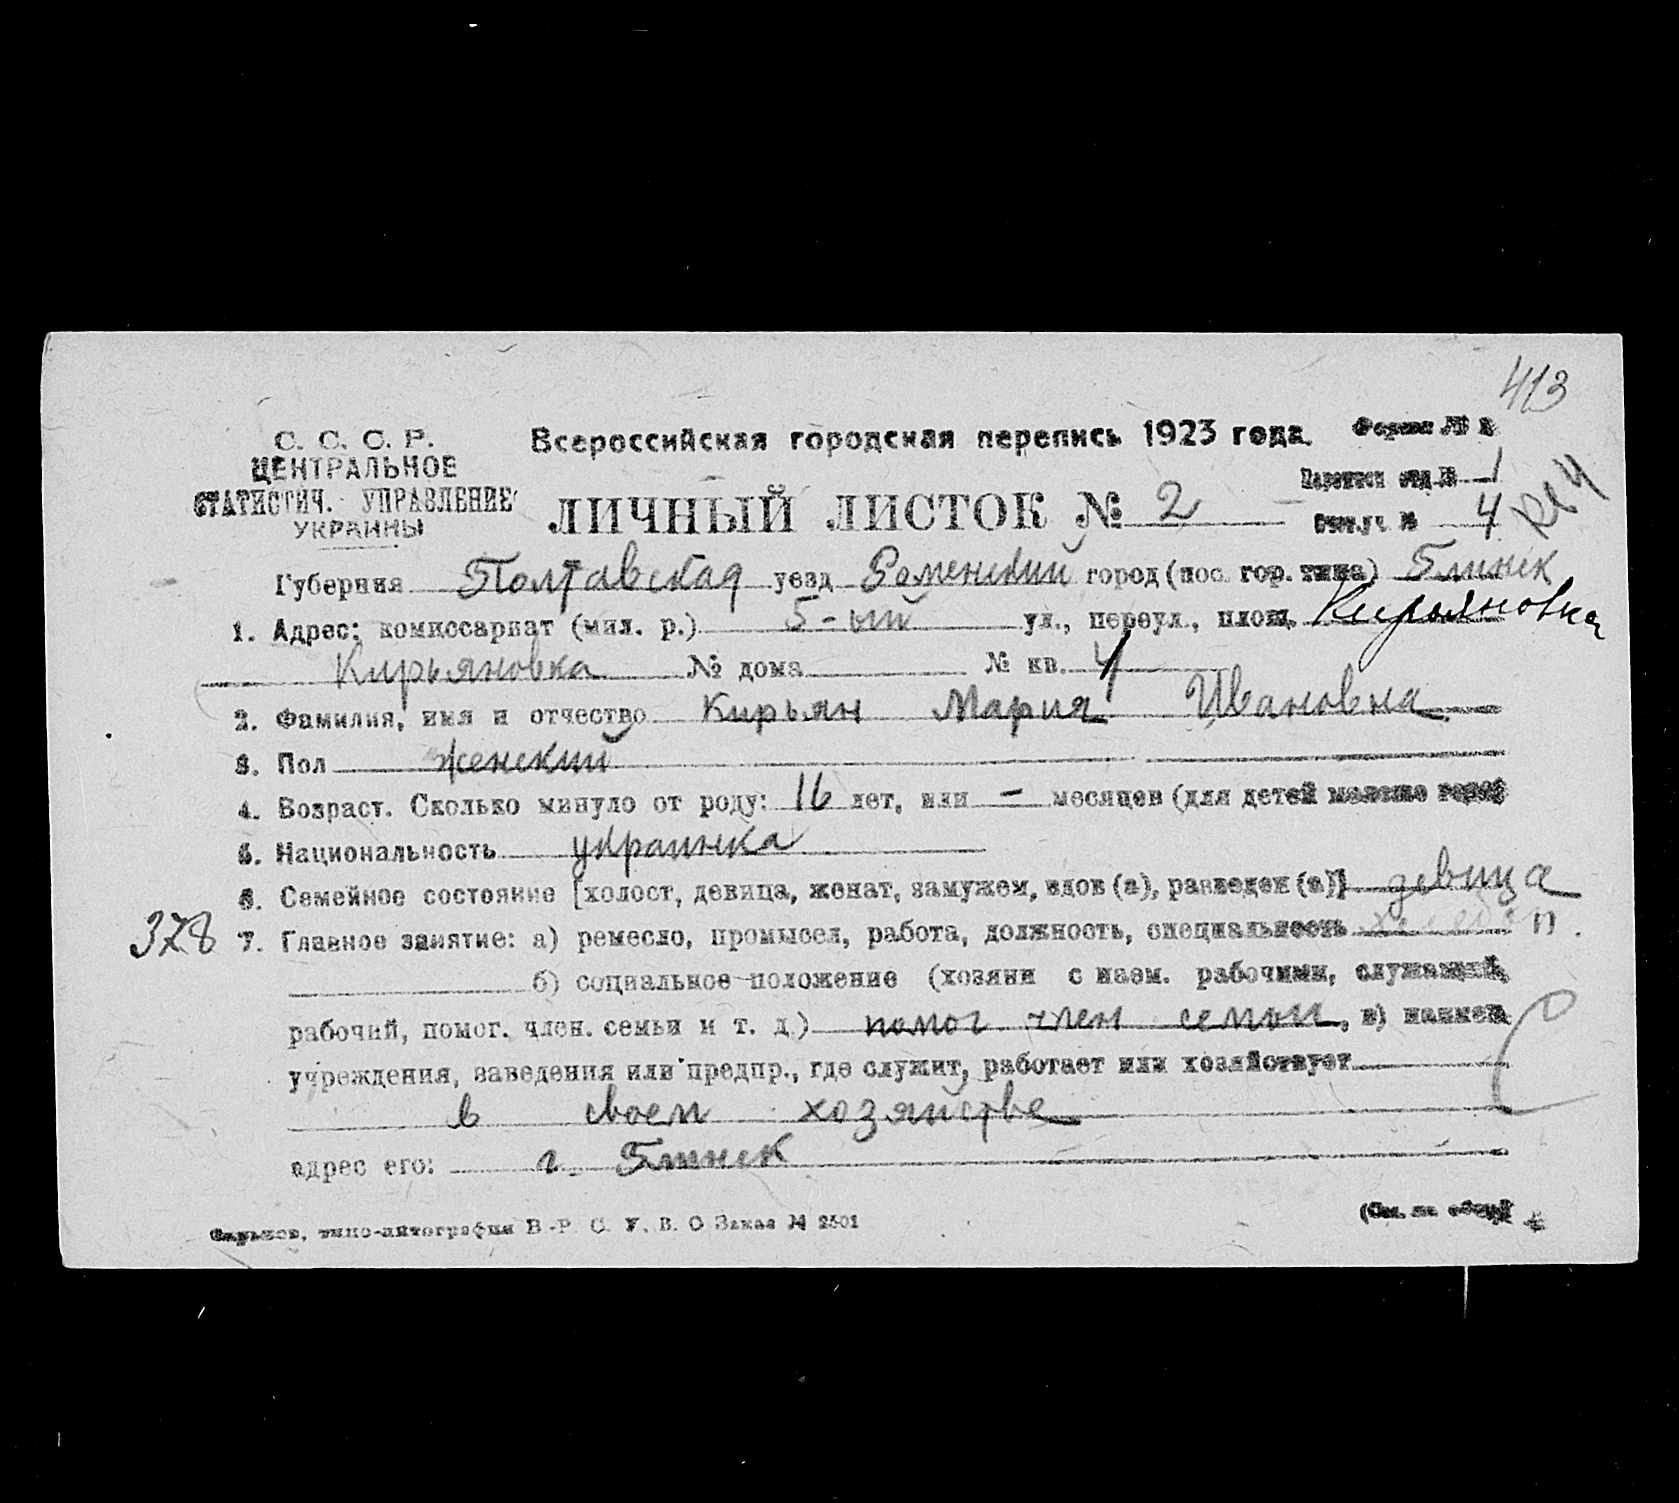 413
С. С. С. Р.
ЦЕНТРАЛЬНОЕ
СТАТИСТИЧ. УПРАВЛЕНИЕ
УКРАИНЫ
Всероссийская городская перепись 1923 года.
Форма №
ЛИЧНЫЙ ЛИСТОК № 2
отд. № 1
№ 4
Губерния Полтавская уезд Роменский город (пос. гор. типа) Глинск
1. Адрес: комиссариат (мил. р.) 5-ый ул., переул., площ. Кирьяновка
Кирьяновка № дома № кв. 4
2. Фамилия, имя и отчество Кирьян Мария Ивановна
3. Пол женский
4. Возраст. Сколько минуло от роду: 16 лет, или - месяцев (для детей моложе года)
5. Национальность украинка
6. Семейное состояние [холост, девица, женат, замужем, вдов (а), разведен (а)] девица
378 7. Главное занятие: а) ремесло, промысел, работа, должность, специальность
б) социальное положение (хозяин с наем. рабочими, служащий,
рабочий, помог. член. семьи и т. д.) помог член семьи, в) наимен.
учреждения, заведения или предпр., где служит, работает или хозяйствует
в своем хозяйстве
адрес его: г. Глинск
Харьков, типо-литография В.-Р. С. У. В. О Заказ № 2501
(См. на обор.)